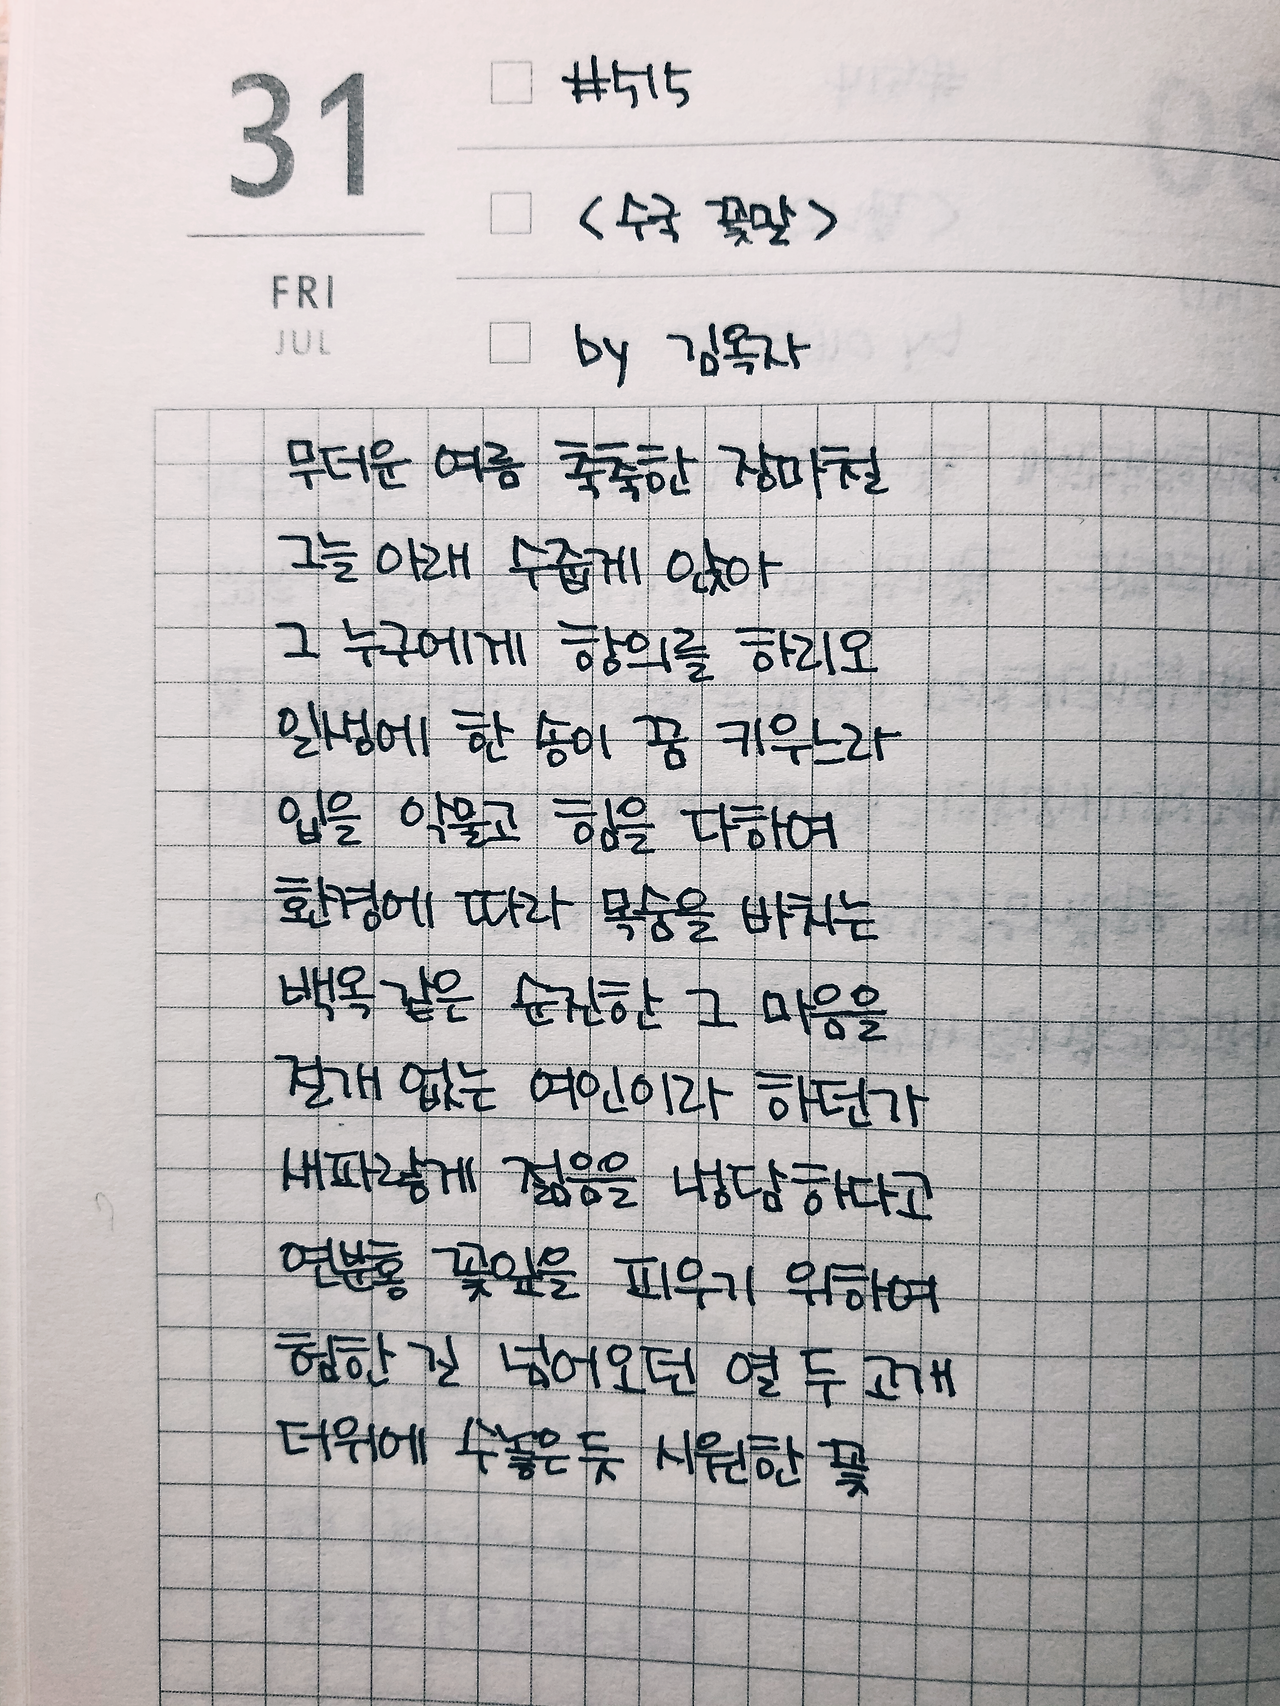 31
FRI
JUL
#515
<수국 꽃말>
by 김옥자
무더운 여름 축축한 장마철
그늘 아래 수줍게 앉아
그 누구에게 항의를 하리오
일생에 한 송이 꿈 키우느라
입을 악물고 힘을 다하여
환경에 따라 목숨을 바치는
백옥 같은 순진한 그 마음을
절개 없는 여인이라 하던가
새파랗게 젊음을 냉담하다고
연분홍 꽃잎을 피우기 위하여
험한 길 넘어오던 열 두 고개
더위에 수놓은 듯 시원한 꽃